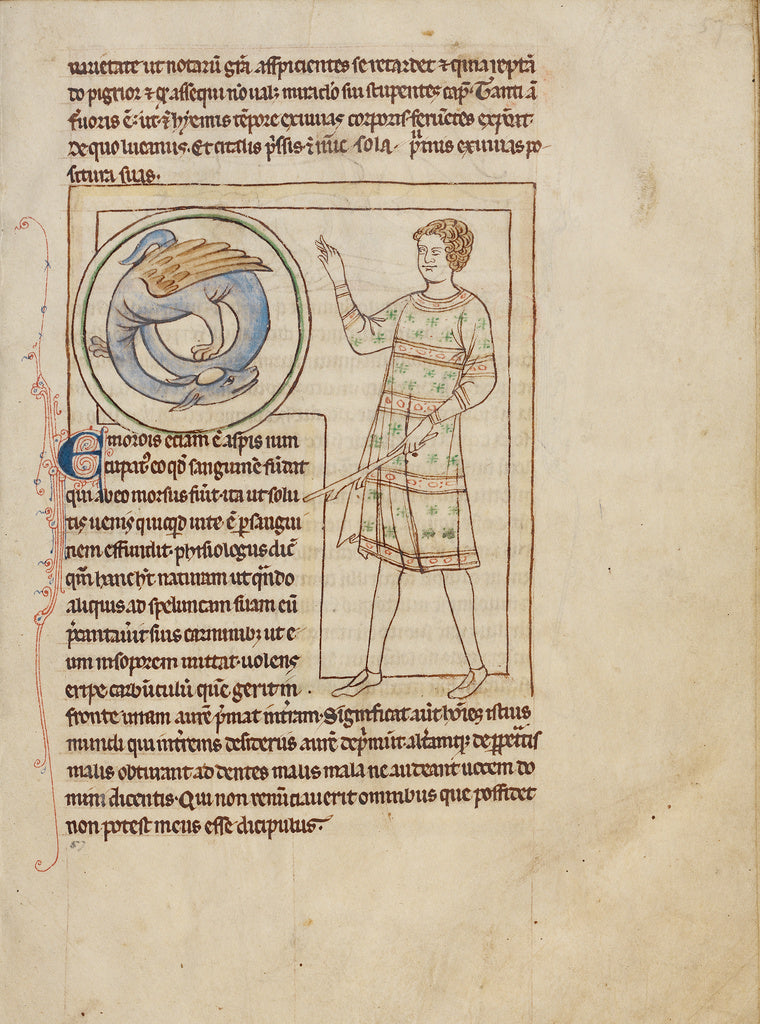 uarietate ut notarū grā aspicientes se retardet ⁊ quia reptā
do pigrior ⁊ assequi nō ual miraclo sui stupentes cap. Tanti ā
feruoris ē ut ī hyemis tēpore exuuias corporis feruētes
De quo lucanus. Et scitalis sola exuuias po
situra suas.
Emorois etiam ē aspis nun
cupat eo qd sanguinē sudat
qui ab eo morsus fuit ita ut solu
tis uenis quicqd uite ē p sangui
nem effundit. phisiologus dic̄
qm hanc naturam ut qn̄do
aliquis ad speluncam suam eū
pcantauit suis carminib; ut e
um in soporem mittat uolens
eripe carbūculū quē gerit in
fronte unam aurē pmat in trām. Significat aut hōies istius
mundi qui in trenis desideriis aurē depmunt altamq; de ppetratis
malis obturant addentes malis mala ne audeant uocem do
mini dicentis. Qui non renūciauerit omnibus que possidet
non potest meus esse dicipulus.
57